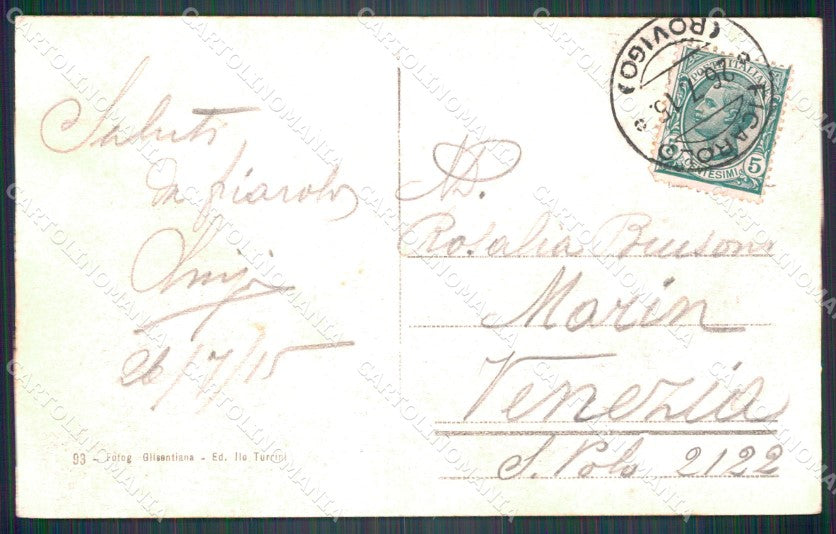 Saluti
da Ficarolo
Luigi
26/7/15
N.D.
Rosalia
Marin
Venezia
S. Polo 2122
FICAROLO
(ROVIGO)
26.7.15
POSTE ITALIANE
CENTESIMI 5
93 - Fotog. Glisentiana - Ed. Ilo Turrini
CARTOLINOMANIA